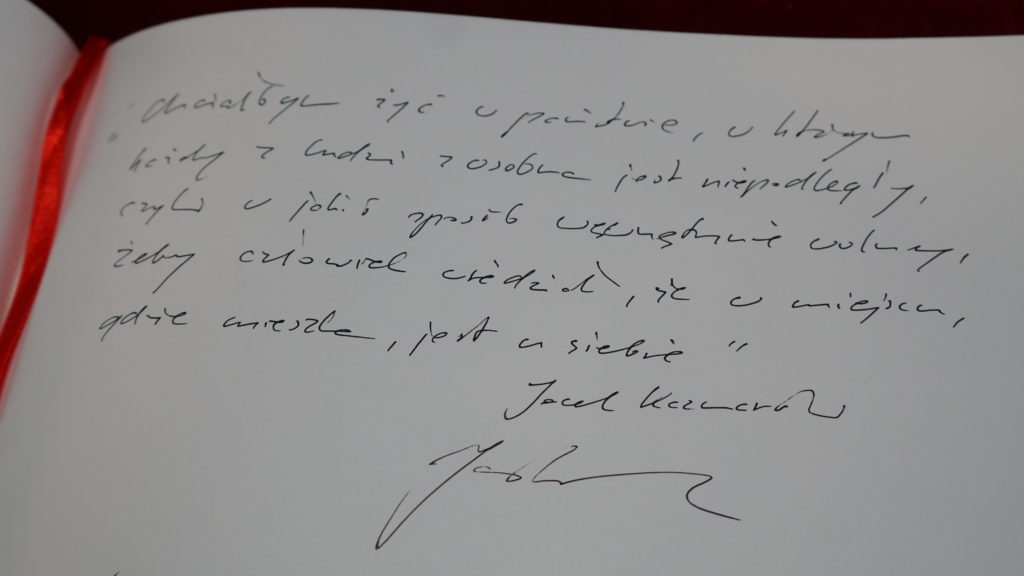 "chciałbym żyć w państwie, w którym
każdy z ludzi z osobna jest niepodległy,
czyli w jakiś sposób wewnętrznie wolny,
żeby człowiek wiedział, że w miejscu,
gdzie mieszka, jest u siebie"
Jacek Kaczmarski